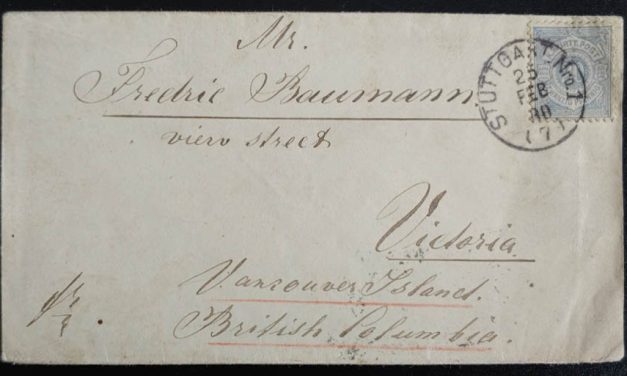 Mr.
Fredric Baumann
view street
Victoria
Vancouver Island.
British Columbia.
STUTTGART. Nro. 1
FEB
(7)
WÜRTT. POST